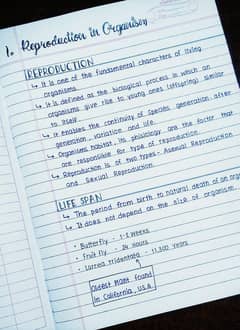 1. Reproduction in Organism
REPRODUCTION
↳ It is one of the fundamental characters of living
organisms
↳ It is defined as the biological process in which an
organisms give rise to young ones (offspring) similar
to itself.
↳ It enables the continuity of species, generation after
generation, variation and life.
↳ Organisms habitat, its physiology are the factor that
are responsible for type of reproduction.
↳ Reproduction is of two types - Asexual Reproduction
and Sexual Reproduction.
LIFE SPAN
↳ The period from birth to natural death of an
↳ It does not depend on the size of organism
• Butterfly - 1-2 weeks
• Fruit fly - 24 hours
• Larrea tridentata - 11,300 years
Oldest plant found
in California, U.S.A